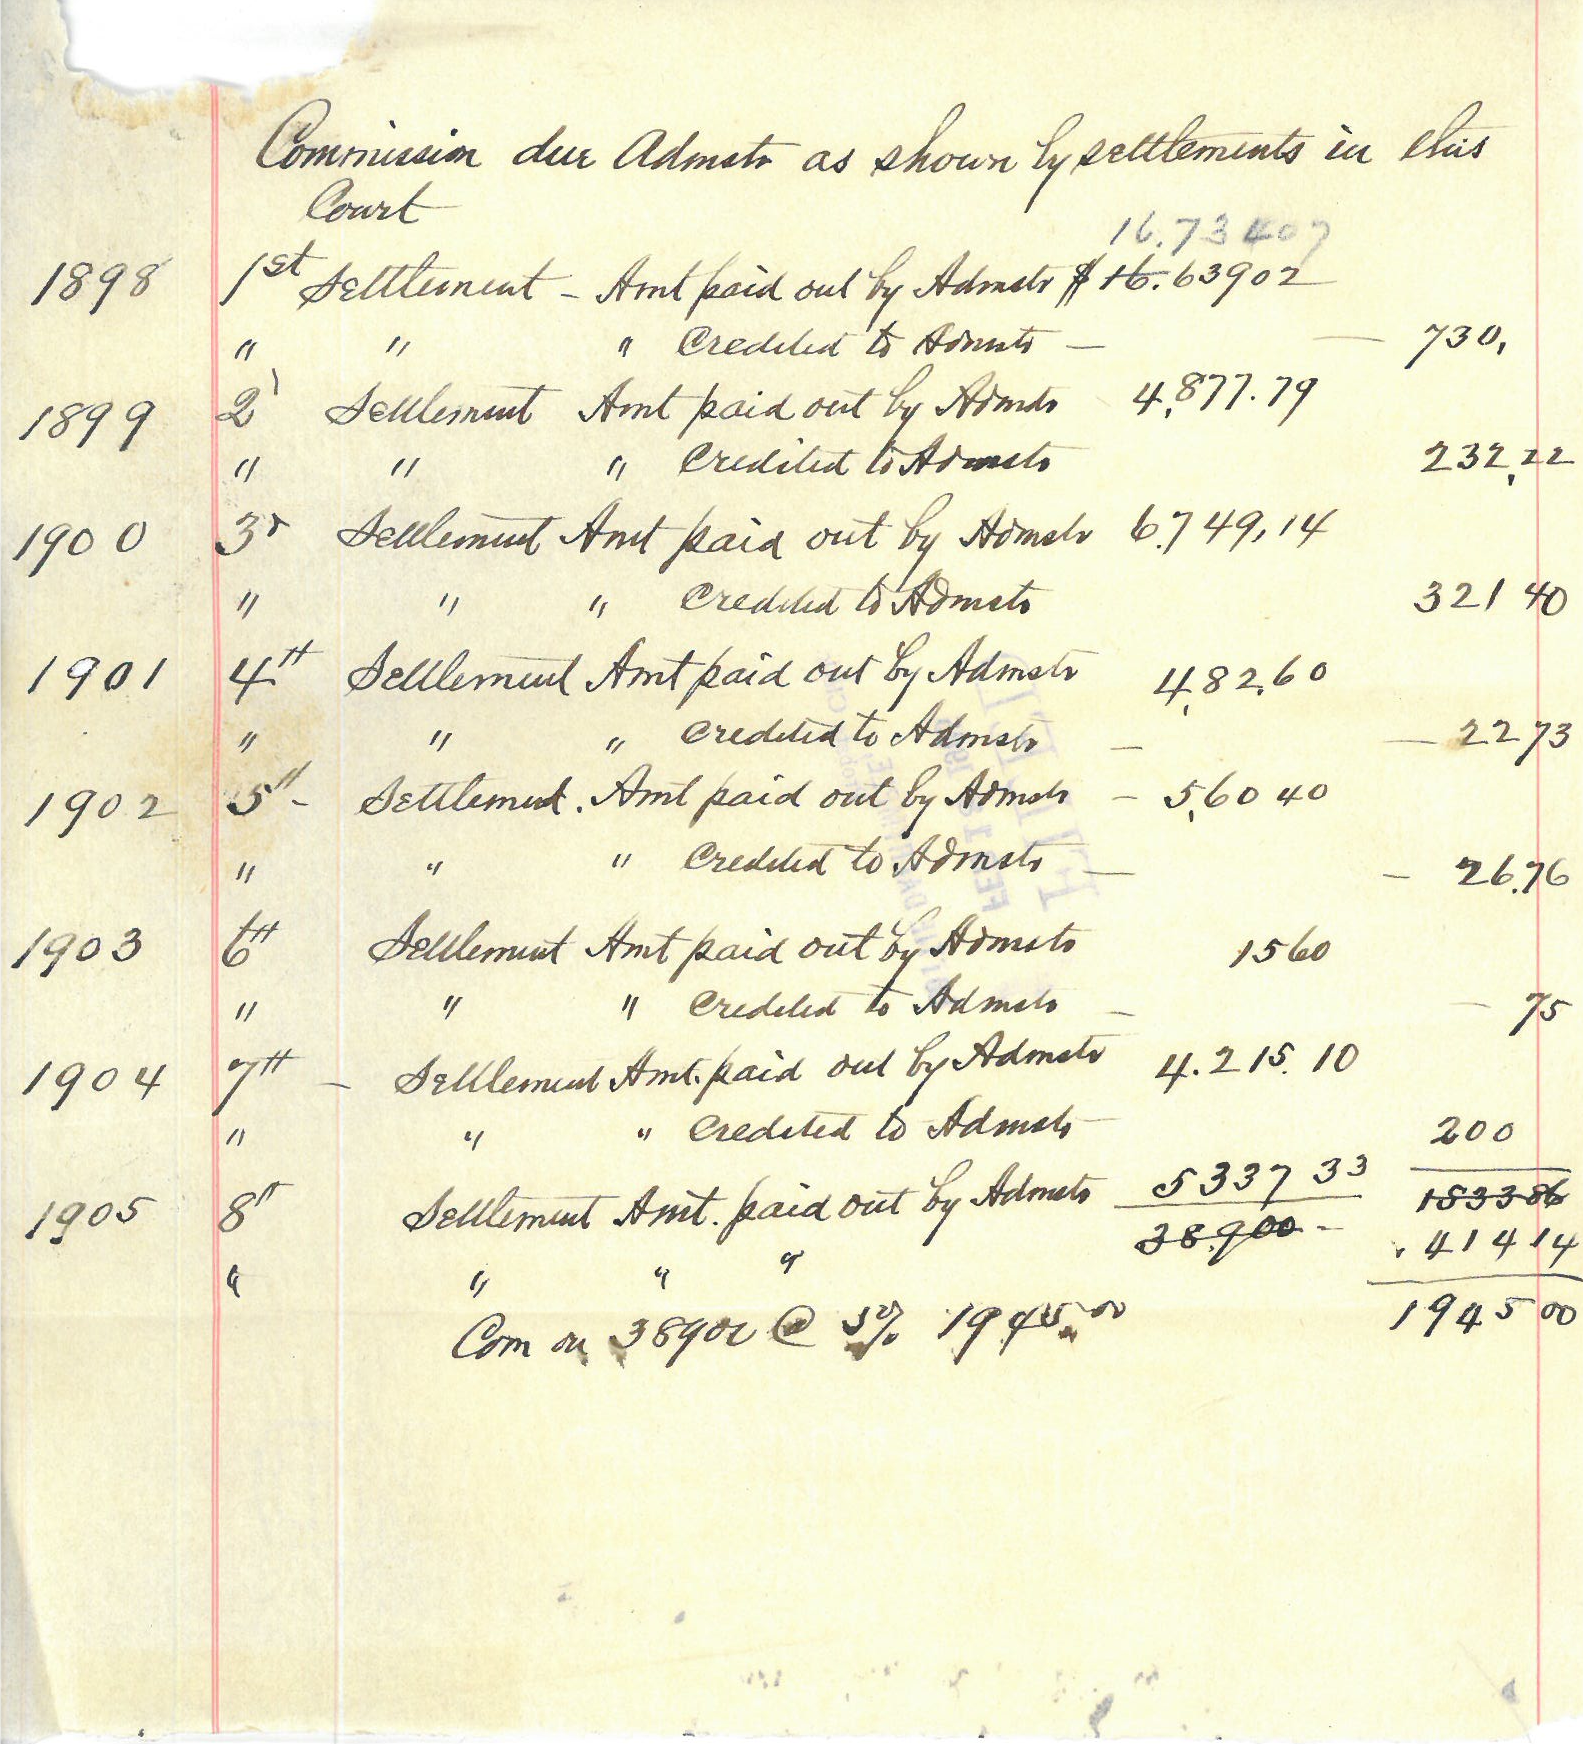 Commission due Admstr as shown by settlements in this
Court
16.73407
1898 1st Settlement - Amt paid out by Admstr $ 16.63902
" " " Credited to Admstr - - 730,
1899 2d Settlement Amt paid out by Admstr 4,877.79
" " " Credited to Admstr 232,22
1900 3d Settlement Amt paid out by Admstr 6,749,14
" " " Credited to Admstr 321 40
1901 4th Settlement Amt paid out by Admstr 4,82,60
" " " Credited to Admstr - - 22 73
1902 5th - Settlement. Amt paid out by Admstr - 5,60 40
" " " Credited to Admstr - - 26.76
1903 6th Settlement Amt paid out by Admstr 15 60
" " " Credited to Admstr - - 75
1904 7th - Settlement Amt. paid out by Admstr 4.215.10
" " " Credited to Admstr - 200
1905 8th Settlement Amt. paid out by Admstr 5337 33 1533 86
" " " " 38,900 - 414 14
Com on 38900 @ 5% 1945.00 1945 00